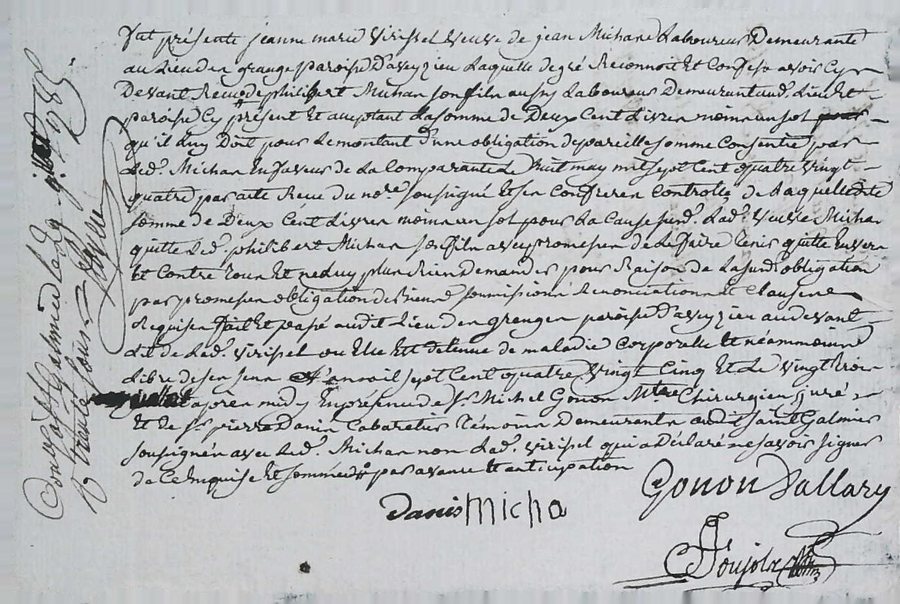 fut présente jeanne marie virissel veuve de jean Michan Laboureur Demeurante
au Lieu des granges paroisse D'aveyzieu Laquelle de gré Reconnoit Et Confesse avoir Cy
Devant Reçu de philibert Michan son fils aussy Laboureur Demeurant aud. Lieu Et
paroisse Cy présent Et acceptant La somme de Deux Cent Livres moins un sol
qu'il Luy Doit pour Le montant d'une obligation de pareille somme Consentie par
Led. Michan En faveur de La Comparante Le huit may mil sept Cent quatre vingt
quatre par acte Reçu du nore soussigné Et son Confrere Controlé, de Laquelle dte
somme de Deux Cent Livres moins un sol pour La Cause susd. Lad. veuve Michan
quitte Led. philibert Michan son fils avec promesse de Le faire tenir quitte Envers
Et Contre tous Et ne Luy plus Rien Demander pour Raison de La susd. obligation
par promesse obligation de Biens soumissions Renonciations Et Clauses
Requises fait Et passé audit Lieu des granges paroisse D'aveyzieu au devant
Lit de Lad. virissel ou Elle Est detenue de maladie Corporelle Et néammoins
Libre de ses sens L'an mil sept Cent quatre vingt Cinq Et Le vingt trois
après midy En présence de Sr Michel Gonon Mtre Chirurgien juré
Et de Sr pierre Danis Cabaretier Témoins Demeurants audit Saint Galmier
soussignés avec Led. Michan non Lad. virissel qui a Déclaré ne savoir signer
de Ce Enquise Et sommée par avance Et anticipation
Gonon Dallary
Danis Micha
Poujol
Controlé à St Galmier Le 29
1785
Reçu trente sous